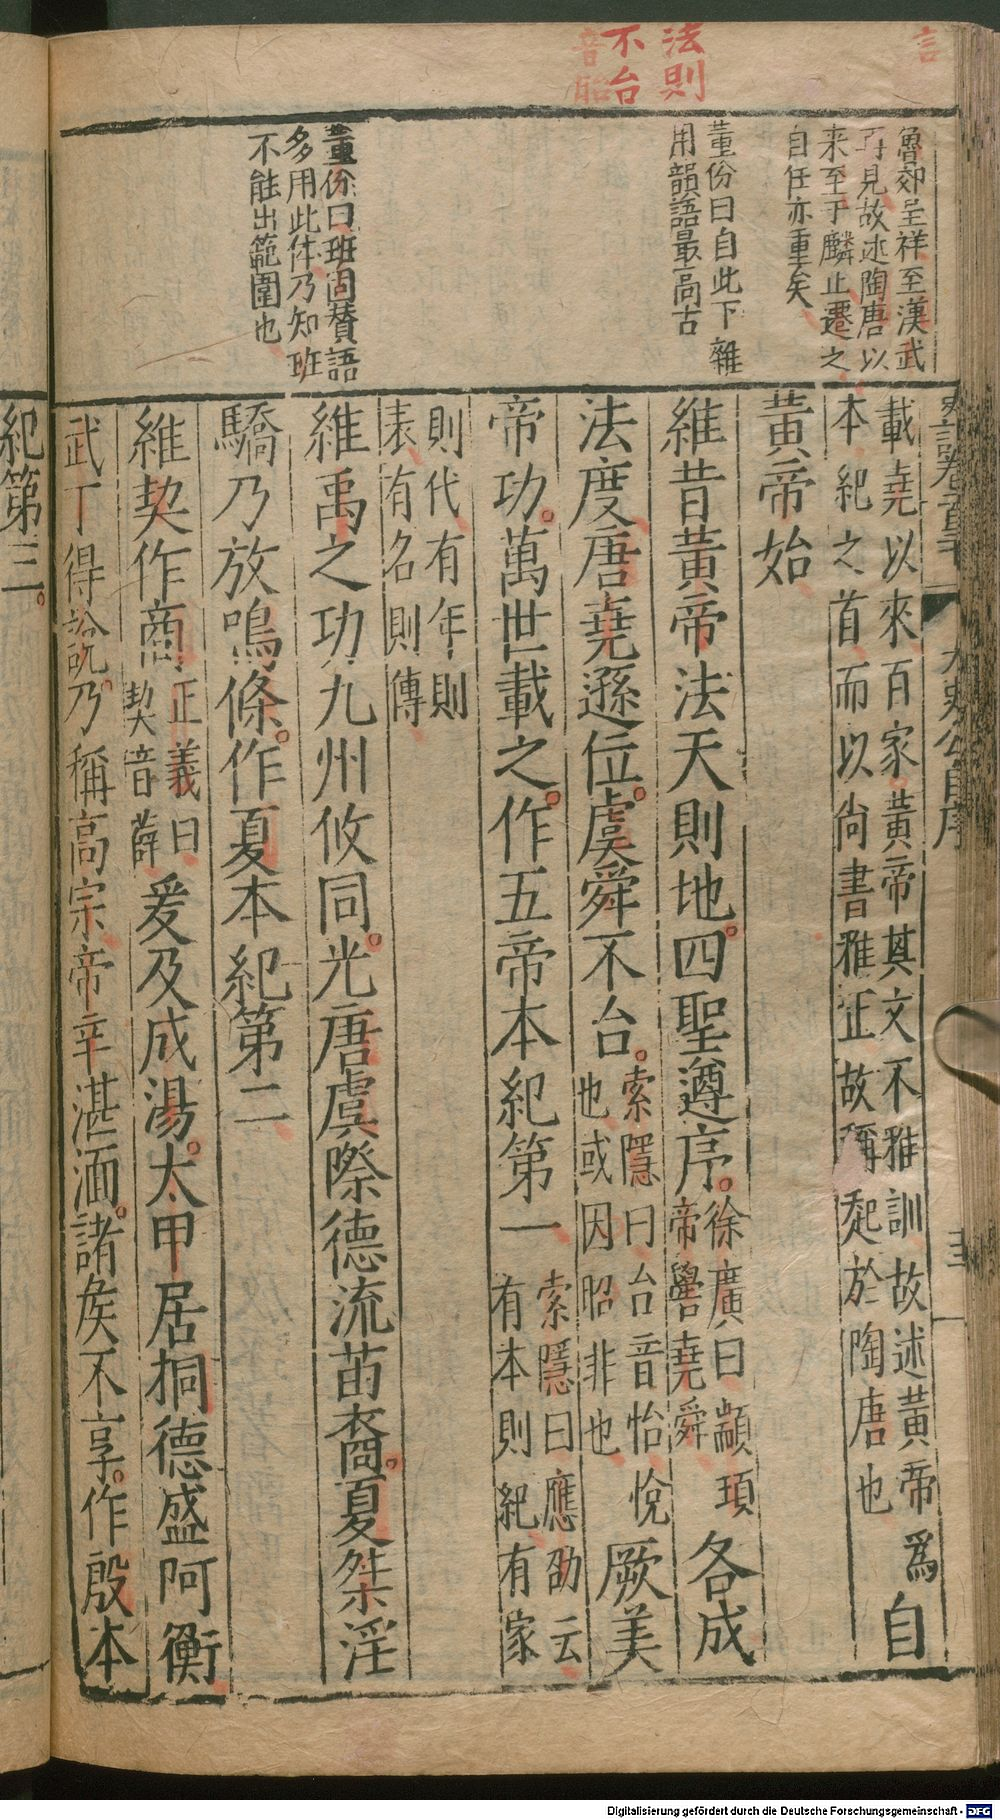 言
法則
不台
音眙
魯郊呈祥至漢武
再見故述陶唐以
来至于麟止遷之
自任亦重矣
董份曰自此下雜
用韻語最高古
董份曰班固賛語
多用此体乃知班
不能出範圍也
太史公自序
載堯以來百家黄帝其文不雅訓故述黄帝爲
本紀之首而以尚書雅正故稱起於陶唐也
自
黄帝始
維昔黄帝法天則地四聖遵序
徐廣曰顓頊
帝嚳堯舜
各成
法度唐堯遜位虞舜不台
索隱曰台音怡悅
也或因昭非也
厥美
帝功萬世載之作五帝本紀第一
索隱曰應劭云
有本則紀有家
則代有年則
表有名則傳
維禹之功九州攸同光唐虞際德流苗裔夏桀淫
驕乃放鳴條作夏本紀第二
維契作商
正義曰
契音薛
爰及成湯太甲居桐德盛阿衡
武丁得說乃稱高宗帝辛湛湎諸侯不享作殷本
紀第三
Digitalisierung gefördert durch die Deutsche Forschungsgemeinschaft - DFG